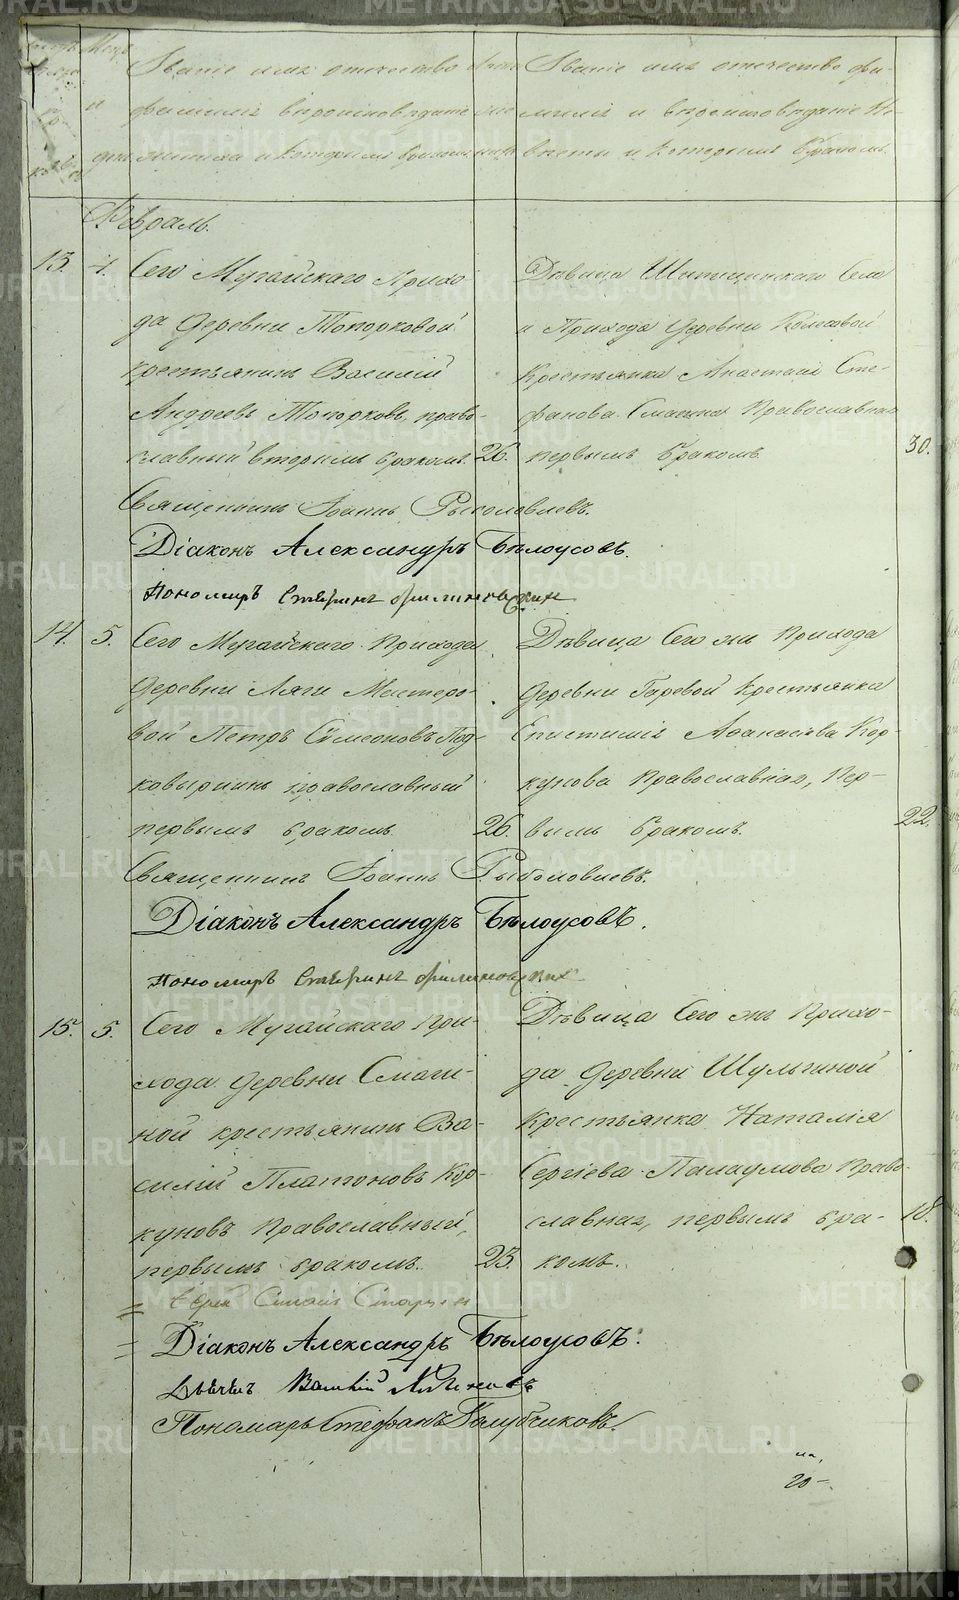 METRIKI.GASO-URAL.RU
Званіе имя отчество
Званіе имя отчество фа-
фамилія вѣроисповѣданіе
милія и вѣроисповѣданіе Не-
жениха и которымъ бракомъ
вѣсты и которымъ бракомъ.
Февраль.
13. 4. Сего Мугайскаго Прихо-
да деревни Топорковой
крестьянинъ Василій
Андреевъ Топорковъ, право-
славный вторымъ бракомъ. 26.
Дѣвица Шипицинскаго Села
и Прихода деревни
Крестьянка Анастасія Сте-
фанова Православная
первымъ бракомъ. 30.
Священникъ Іоаннъ Рыболовлевъ.
Діаконъ Александръ Бѣлоусовъ.
Пономарь
14. 5. Сего Мугайскаго Прихода
деревни Ляги Мастеро-
вой Петръ Сѵмеоновъ Под-
ковыркинъ православный
первымъ бракомъ. 26.
Дѣвица Сего жъ Прихода
деревни Горевой крестьянка
Епистимія Аѳанасіева Кор-
кунова православная, пер-
вымъ бракомъ. 22.
Священникъ Іоаннъ Рыболовлевъ.
Діаконъ Александръ Бѣлоусовъ.
Пономарь
15. 5. Сего Мугайскаго При-
хода деревни Смаги-
ной крестьянинъ Ва-
силій Платоновъ Кор-
куновъ Православный,
первымъ бракомъ. 23.
Дѣвица Сего жъ Прихо-
да деревни Шульгиной
Крестьянка Наталія
Сергіева Право-
славная, первымъ бра-
комъ. 18.
Діаконъ Александръ Бѣлоусовъ.
Пономарь Стефанъ Голубчиковъ.
20